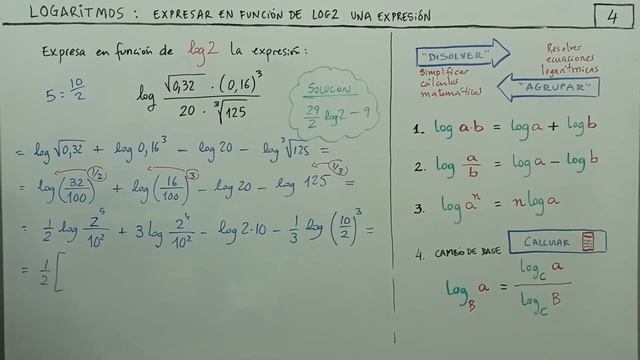 LOGARITMOS : EXPRESAR EN FUNCIÓN DE LOG2 UNA EXPRESIÓN
4
Expresa en función de log2 la expresión:
5 = 10/2
log (√0,32 · (0,16)^3) / (20 · ∛125)
SOLUCIÓN
29/2 log2 - 9
= log √0,32 + log 0,16^3 - log 20 - log ∛125 =
= log (32/100)^(1/2) + log (16/100)^3 - log 20 - log 125^(1/3) =
= 1/2 log 2^5/10^2 + 3 log 2^4/10^2 - log 2·10 - 1/3 log (10/2)^3 =
= 1/2 [
"DISOLVER"
Simplificar
cálculos
matemáticos
Resolver
ecuaciones
logarítmicas
"AGRUPAR"
1. log a·b = log a + log b
2. log a/b = log a - log b
3. log a^n = n log a
4. CAMBIO DE BASE
CALCULAR
log_B a = log_C a / log_C B